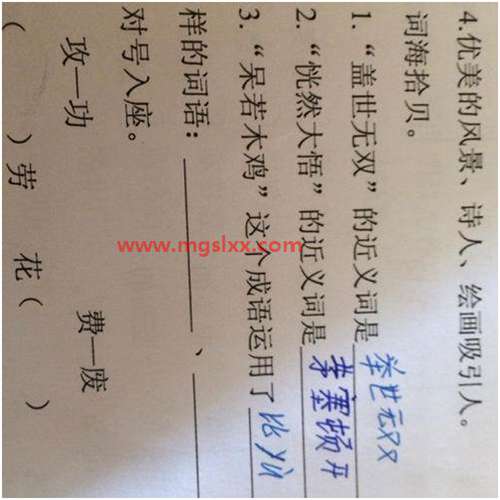 4.优美的风景、诗人、绘画吸引人。
词海拾贝。
1.“盖世无双”的近义词是举世无双
2.“恍然大悟”的近义词是茅塞顿开
3.“呆若木鸡”这个成语运用了比喻
样的词语：、
对号入座。
攻—功 费—废
（ ）劳 花（ ）
www.mgslxx.com